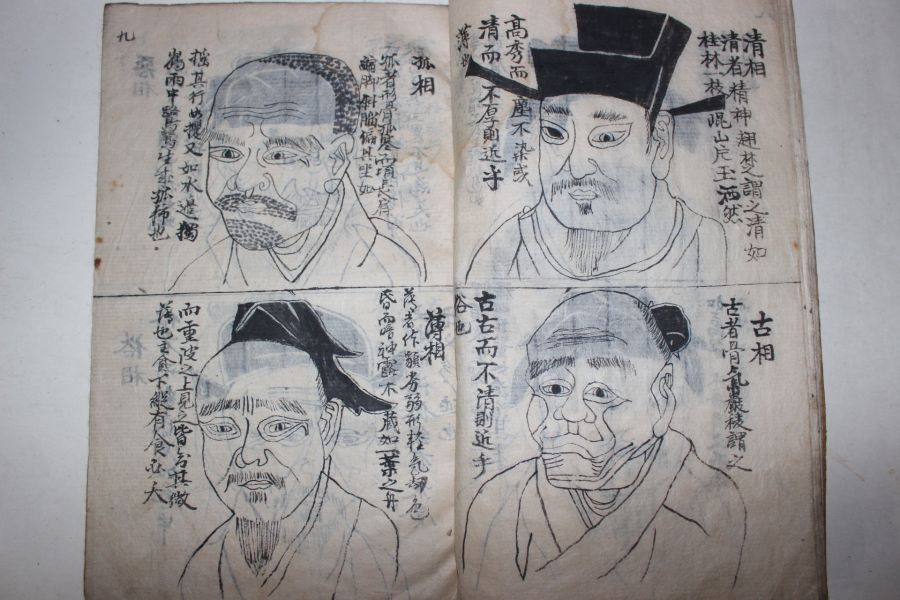 清相
清者精神翹梦之謂之清如
桂林一枝崐山片玉洒然
高秀而一塵不染或
清而不厚則近乎
薄也
古相
古者骨氣巖稜謂之
古古而不清則近乎
俗也
孤相
孤者形骨孤寒而項長肩
縮脚斜腦偏其坐如
搖其行如攫又如水邊獨
鶴雨中鷺鷥生成孤独也
薄相
薄者体額劣弱形輕氣却色
昏而暗神露不藏如一葉之舟
而重波之上見之皆知其微
薄也主貧下縱有食必夭
九